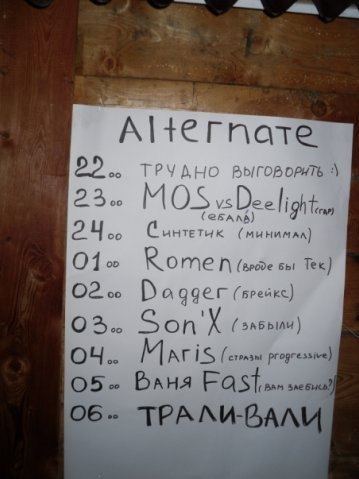 Alternate
22⁰⁰ ТРУДНО ВЫГОВОРИТЬ :)
23⁰⁰ MOS vs Deelight
(ЕБАЛА)
24⁰⁰ Синтетик (минимал)
01⁰⁰ Romen (вроде бы Тек)
02⁰⁰ Dagger (брейкс)
03⁰⁰ Son'X (забыли)
04⁰⁰ Maris (стразы progressive)
05⁰⁰ Ваня Fast (Вам заебись?)
06⁰⁰ ТРАЛИ-ВАЛИ